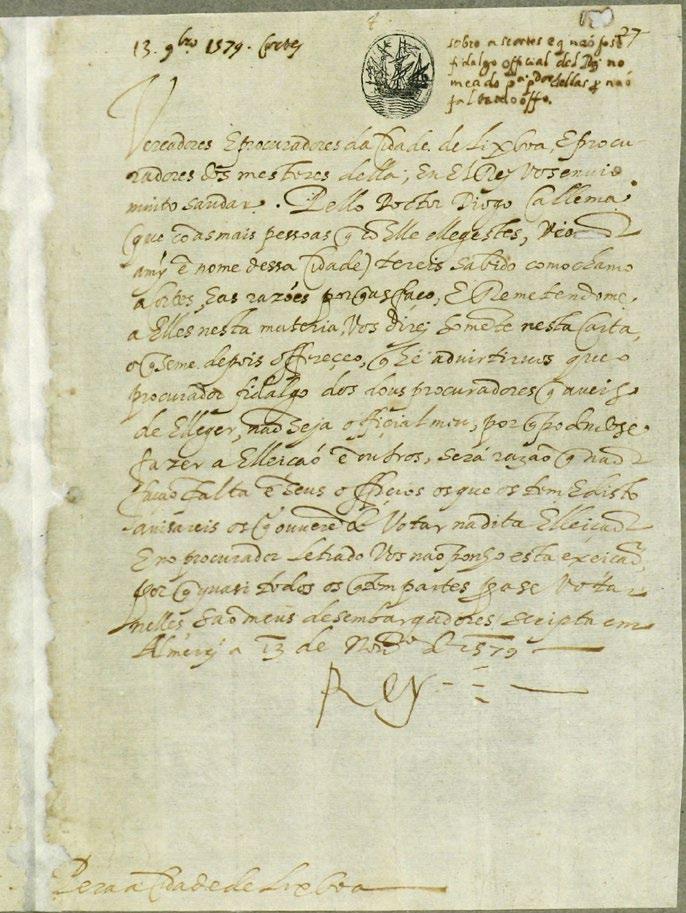 13. 9bro 1579. Cortes
27
sobre as cortes e q não fosse
fidalgo official del Rei no
meado pa pdor dellas, por não
faltar do offo.
Vereadores E procuradores da Cidade de Lixboa, E procu-
radores dos mesteres della, Eu El Rey vos envio
muito saudar. Pello Doctor Diogo Callema
(que co as mais pessoas q cõ Elle ellegestes, veo
a my ẽ nome dessa Cidade) tereis sabido como chamo
a Cortes, E as razões por q as faço, E Remetendome
a Elles nesta materia, Vos direi somẽte nesta Carta,
o q se me depois offereçeo, q he advirtirvos que o
procurador fidalgo dos dous procuradores q aveis
de Elleger, não seja official meu, por q podendose
fazer a Elleicaõ ẽ outros, será razaõ q naõ
façaõ falta ẽ seus officios os que os tem E disto
avisareis os q ouverẽ de Votar na dita Elleicaõ
E no procurador Letrado Vos naõ ponho esta exeicaõ,
por q quasi todos os q tem partes pa se Votar
nelles saõ meus desembargadores scripta em
Almeirĩ a 13 de Novro de 1579
Rey
Pera a Cidade de Lixboa